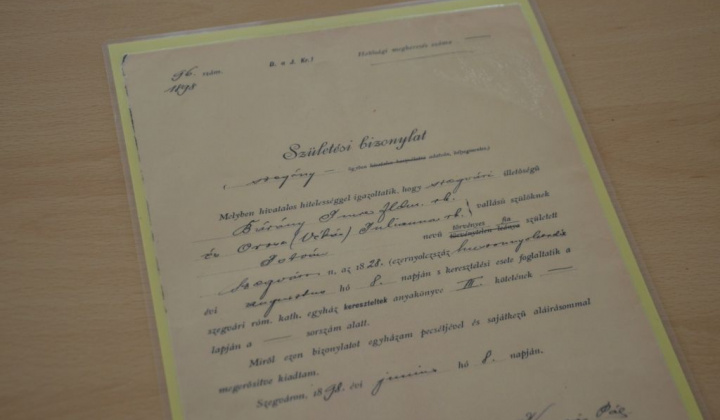 96. szám
1898
Születési bizonylat
szegény
Melyben hivatalos hitelességgel igazoltatik, hogy szegvári illetőségű
Bárány Imre
és Orosz Julianna rk. vallású szülőknek
István nevü törvényes fia született
Szegváron, u. az 1828. (ezernyolczszáz huszonnyolczadik
évi augusztus hó 8. napján s keresztelési esete foglaltatik a
szegvári róm. kath. egyház kereszteltek anyakönyve III. kötetének
lapján a sorszám alatt.
Miről ezen bizonylatot egyházam pecsétjével és sajátkezű aláírásommal
megerősitve kiadtam.
Szegváron, 1898. évi junius hó 8. napján.